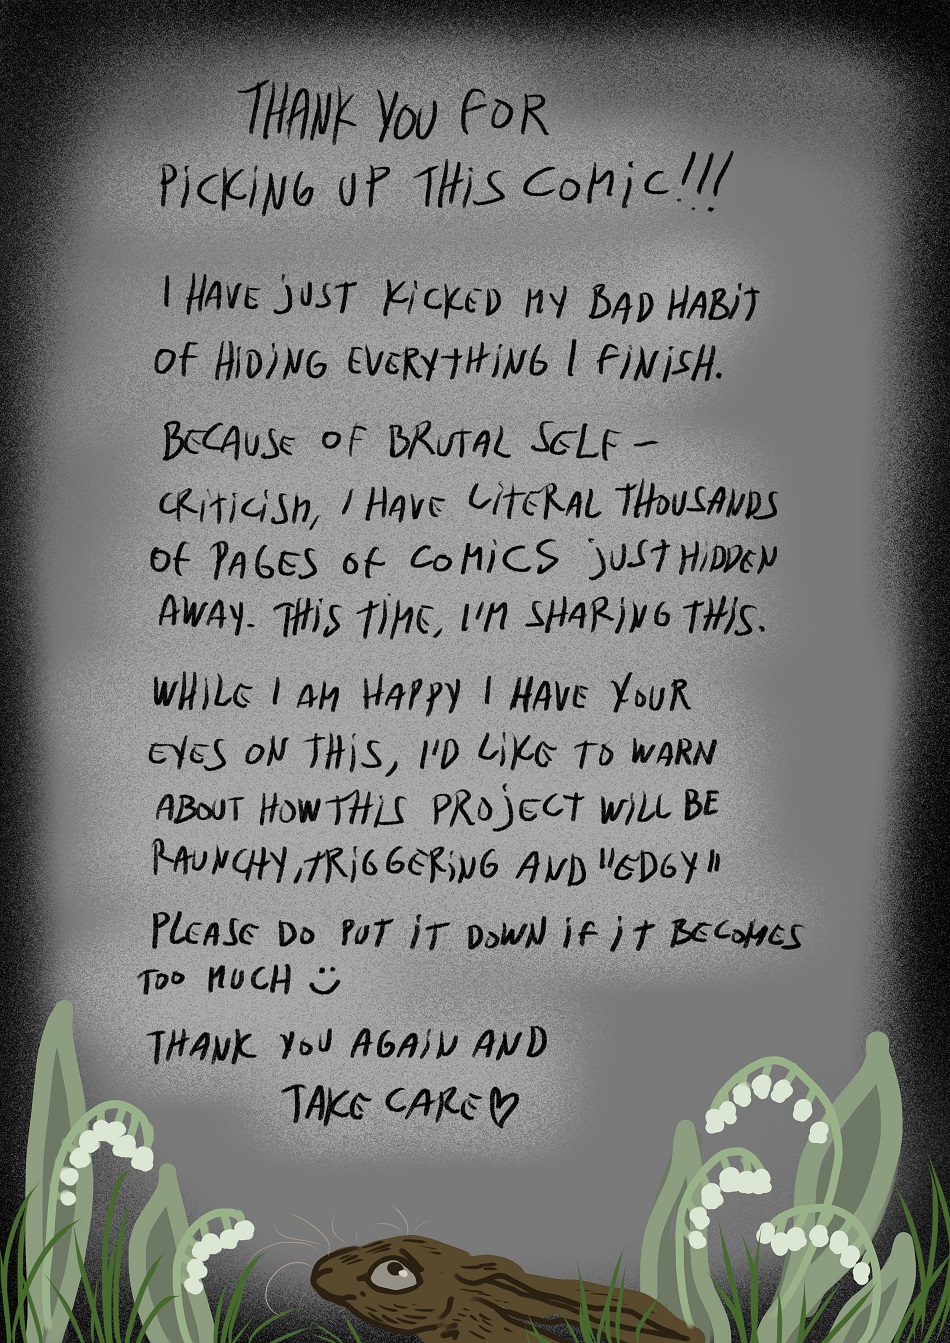 THANK YOU FOR
PICKING UP THIS COMIC!!!
I HAVE JUST KICKED MY BAD HABIT
OF HIDING EVERYTHING I FINISH.
BECAUSE OF BRUTAL SELF-
CRITICISM, I HAVE LITERAL THOUSANDS
OF PAGES OF COMICS JUST HIDDEN
AWAY. THIS TIME, I'M SHARING THIS.
WHILE I AM HAPPY I HAVE YOUR
EYES ON THIS, I'D LIKE TO WARN
ABOUT HOW THIS PROJECT WILL BE
RAUNCHY, TRIGGERING AND "EDGY"
PLEASE DO PUT IT DOWN IF IT BECOMES
TOO MUCH :)
THANK YOU AGAIN AND
TAKE CARE ♡